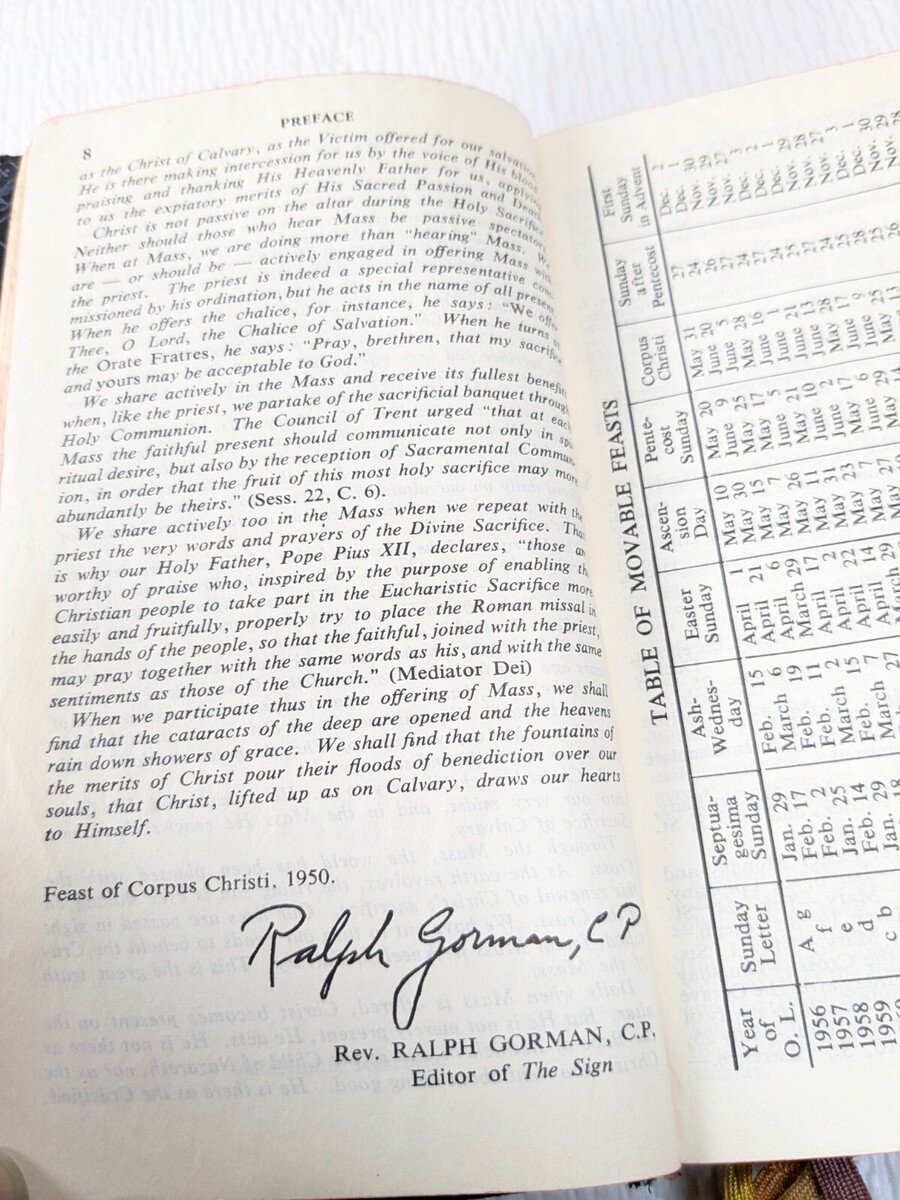 8
PREFACE
as the Christ of Calvary, as the Victim offered for our
He is there making intercession for us by the voice of His
praising and thanking His Heavenly Father for us,
to us the expiatory merits of His Sacred Passion and
Christ is not passive on the altar during the Holy
Neither should those who hear Mass be passive
When at Mass, we are doing more than "hearing" Mass.
are — or should be — actively engaged in offering Mass
the priest. The priest is indeed a special representative
missioned by his ordination, but he acts in the name of all
When he offers the chalice, for instance, he says: "We
Thee, O Lord, the Chalice of Salvation." When he turns
the Orate Fratres, he says: "Pray, brethren, that my
and yours may be acceptable to God."
We share actively in the Mass and receive its fullest
when, like the priest, we partake of the sacrificial banquet
Holy Communion. The Council of Trent urged "that at
Mass the faithful present should communicate not only in
ritual desire, but also by the reception of Sacramental
ion, in order that the fruit of this most holy sacrifice may more
abundantly be theirs." (Sess. 22, C. 6).
We share actively too in the Mass when we repeat with
priest the very words and prayers of the Divine Sacrifice.
is why our Holy Father, Pope Pius XII, declares, "those
worthy of praise who, inspired by the purpose of enabling
Christian people to take part in the Eucharistic Sacrifice more
easily and fruitfully, properly try to place the Roman missal in
the hands of the people, so that the faithful, joined with the priest,
may pray together with the same words as his, and with the same
sentiments as those of the Church." (Mediator Dei)
When we participate thus in the offering of Mass, we shall
find that the cataracts of the deep are opened and the heavens
rain down showers of grace. We shall find that the fountains of
the merits of Christ pour their floods of benediction over our
souls, that Christ, lifted up as on Calvary, draws our hearts
to Himself.
Feast of Corpus Christi, 1950.
Ralph Gorman, C.P.
Rev. RALPH GORMAN, C.P.
Editor of The Sign
TABLE OF MOVABLE FEASTS
Year of O. L. Sunday Letter Septua-gesima Sunday Ash-Wednes-day Easter Sunday Ascen-sion Day Pente-cost Sunday Corpus Christi Sunday after Pentecost First Sunday in Advent
1956 A g Jan. 29 Feb. 15 April 1 May 10 May 20 May 31 27 Dec. 2
1957 f Feb. 17 March 6 April 21 May 30 June 9 June 20 24 Dec. 1
1958 e Feb. 2 Feb. 19 April 6 May 15 May 25 June 5 26 Nov. 30
1959 d Jan. 25 Feb. 11 March 29 May 7 May 17 May 28 27 Nov. 29
c b Feb. 14 March 2 April 17 May 26 June 5 June 16 24 Nov. 27